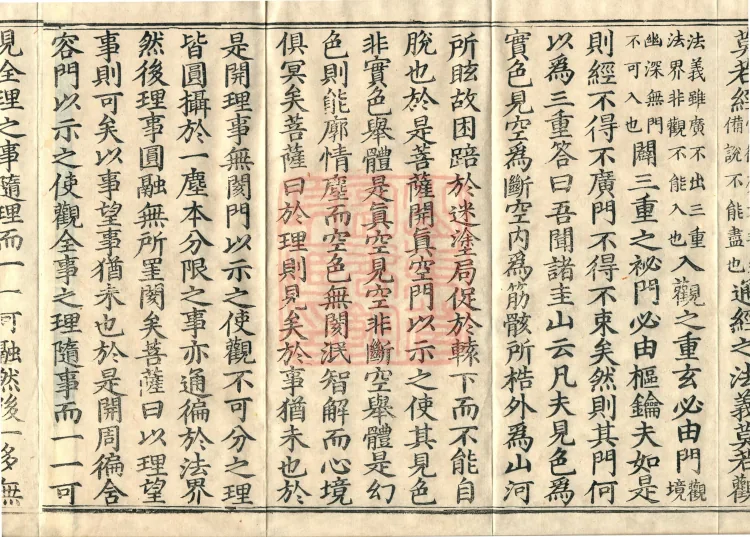 莫若經備說不能盡也通經之法義莫若觀
法義雖廣不出三重法界非觀不能入也入觀之重玄必由門觀境
幽深無門不可入也闢三重之祕門必由樞鑰夫如是
則經不得不廣門不得不束矣然則其門何
以爲三重答曰吾聞諸圭山云凡夫見色爲
實色見空爲斷空內爲筋骸所梏外爲山河
所眩故困踣於迷塗局促於轅下而不能自
脫也於是菩薩開眞空門以示之使其見色
非實色舉體是眞空見空非斷空舉體是幻
色則能廓情塵而空色無閡泯智解而心境
俱冥矣菩薩曰於理則見矣於事猶未也於
是開理事無閡門以示之使觀不可分之理
皆圓攝於一塵本分限之事亦通徧於法界
然後理事圓融無所罣閡矣菩薩曰以理望
事則可矣以事望事猶未也於是開周徧含
容門以示之使觀全事之理隨事而一一可
見全理之事隨理而一一可融然後一多無